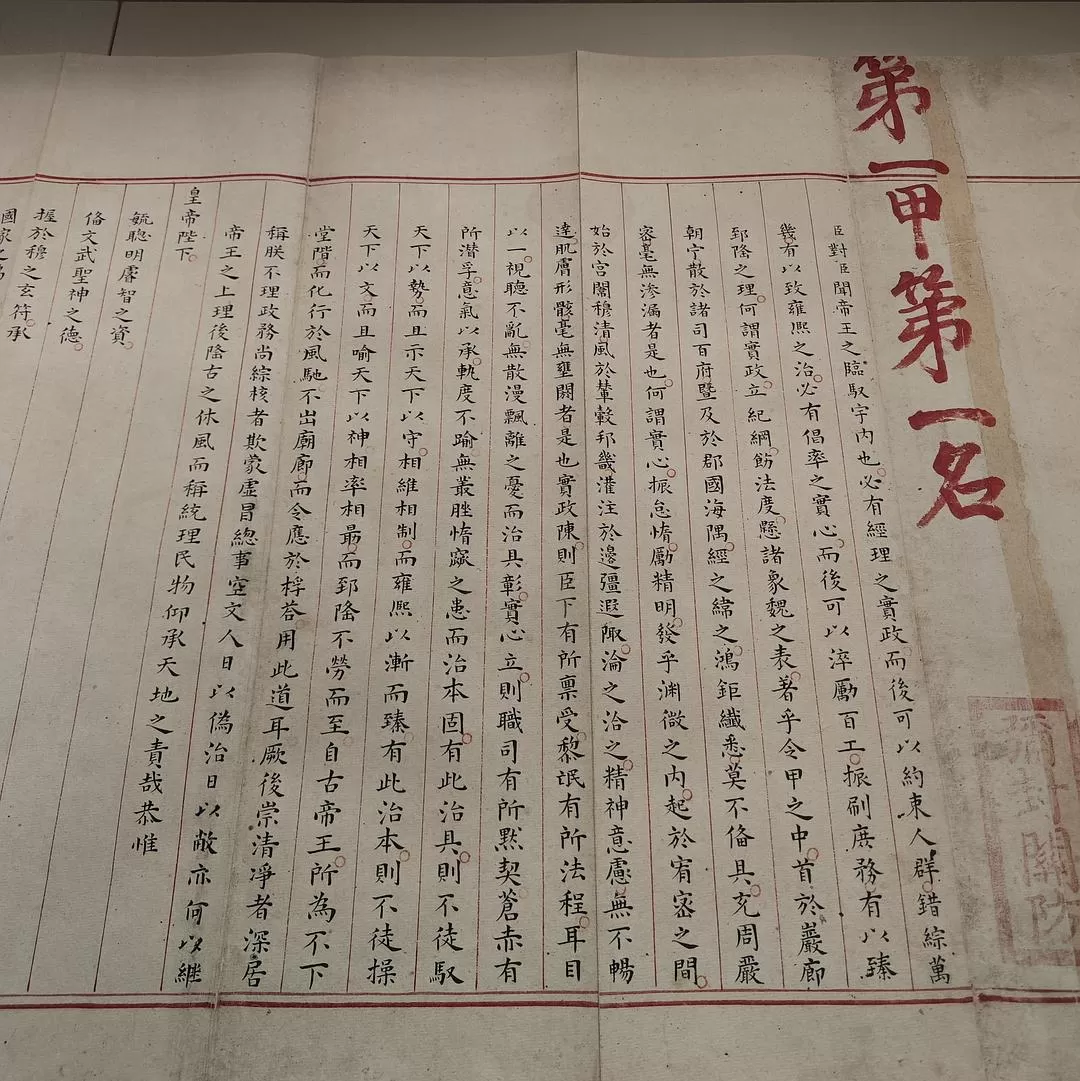 第一甲第一名
彌封關防
臣對臣聞帝王之臨馭宇內也必有經理之實政而後可以約束人群錯綜萬
幾有以致雍熙之治必有倡率之實心而後可以淬勵百工振刷庶務有以臻
郅隆之理何謂實政立紀綱飭法度懸諸象魏之表著乎令甲之中首於巖廊
朝宁散於諸司百府暨及於郡國海隅經之緯之鴻鉅纖悉莫不俻具充周嚴
宻毫無滲漏者是也何謂實心振怠惰勵精明發乎渊微之內起於宥宻之間
始於宮闈穆清風於輦轂邦畿灌注於邊疆遐陬淪之洽之精神意慮無不暢
達肌膚形骸毫無壅閼者是也實政陳則臣下有所禀受黎氓有所法程耳目
以一視聽不亂無散漫飄離之憂而治具彰實心立則職司有所默契蒼赤有
所潛孚意氣以承軌度不踰無叢脞惰窳之患而治本固有此治具則不徒馭
天下以勢而且示天下以守相維相制而雍熙以漸而臻有此治本則不徒操
天下以文而且喻天下以神相率相朂而郅隆不勞而至自古帝王所為不下
堂階而化行於風馳不出廟廊而令應於桴荅用此道耳厥後崇清凈者深居
稱朕不理政務尚綜核者欺蒙虛冒總事空文人日以偽治日以敝亦何以継
帝王之上理後隆古之休風而稱統理民物仰承天地之責哉恭惟
皇帝陛下
毓聰明睿智之資
俻文武聖神之德
握於穆之玄符承
國家之